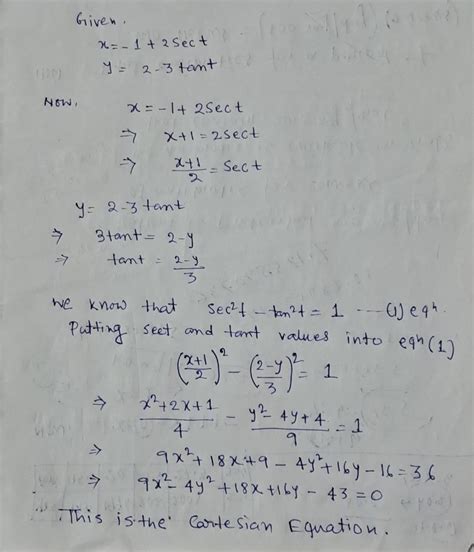 Given.
x = -1 + 2 sect
y = 2 - 3 tant
Now, x = -1 + 2 sect
⇒ x+1 = 2 sect
⇒ (x+1)/2 = sec t
y = 2 - 3 tant
⇒ 3tant = 2-y
⇒ tant = (2-y)/3
We know that sec²t - tan²t = 1 --- (1) eqⁿ.
Putting sect and tant values into eqⁿ (1)
((x+1)/2)² - ((2-y)/3)² = 1
⇒ (x²+2x+1)/4 - (y²-4y+4)/9 = 1
⇒ 9x²+18x+9 - 4y²+16y-16 = 36
⇒ 9x²-4y²+18x+16y-43 = 0
This is the Cartesian Equation.